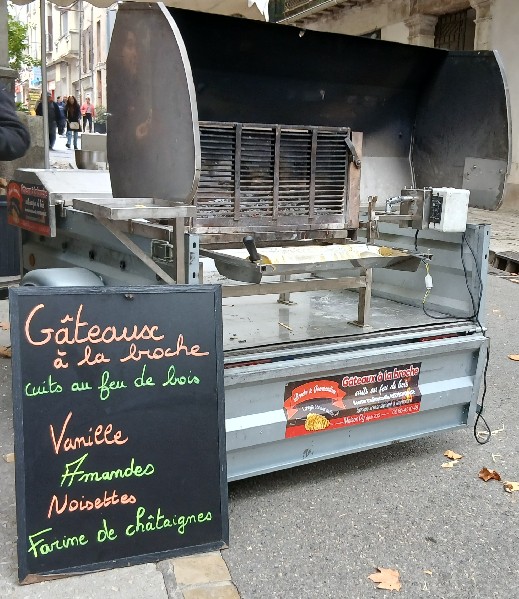 Gâteaux
à la broche
cuits au feu de bois
Vanille
Amandes
Noisettes
Farine de châtaignes
Gâteaux à la broche
cuits au feu de bois